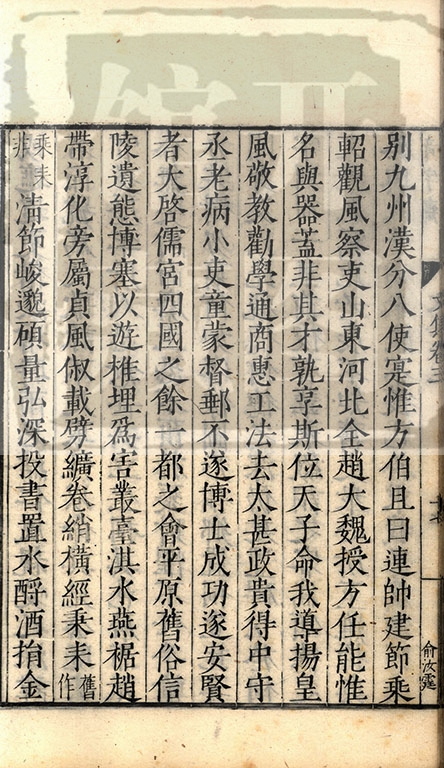 別九州漢分八使寔惟方伯且曰連帥建節乘
軺觀風察吏山東河北全趙大魏授方任能惟
名與器蓋非其才孰享斯位天子命我導揚皇
風敬教勸學通商惠工法去太甚政貴得中守
丞老病小吏童蒙督郵不遂博士成功遂安賢
者大啓儒宮四國之餘一都之會平原舊俗信
陵遺態博塞以遊椎埋爲害叢臺淇水燕裾趙
帶淳化旁屬貞風俶載劈纊卷綃橫經秉耒舊作
乘耒清節峻邈碩量弘深投書置水酹酒捐金
俞汝霆